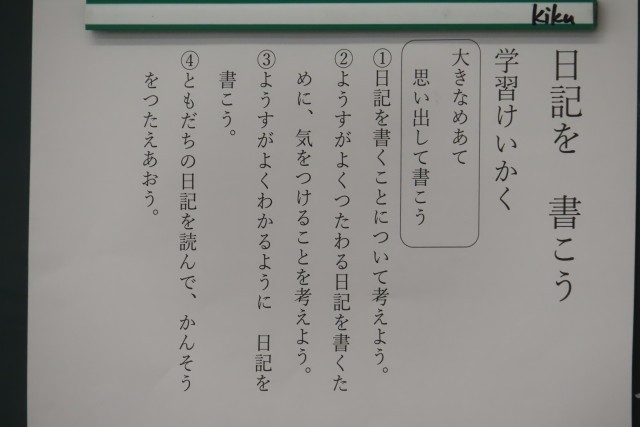 kiku
日記を　書こう
学習けいかく
大きなめあて
思い出して書こう
①日記を書くことについて考えよう。
②ようすがよくつたわる日記を書くた
めに、気をつけることを考えよう。
③ようすがよくわかるように　日記を
書こう。
④ともだちの日記を読んで、かんそう
をつたえあおう。